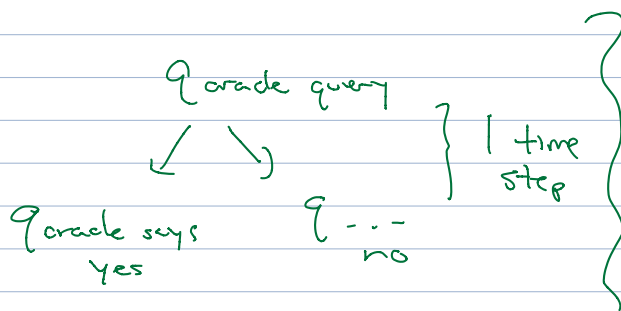 q oracle query
1 time
step
q oracle says
yes
q - - -
no